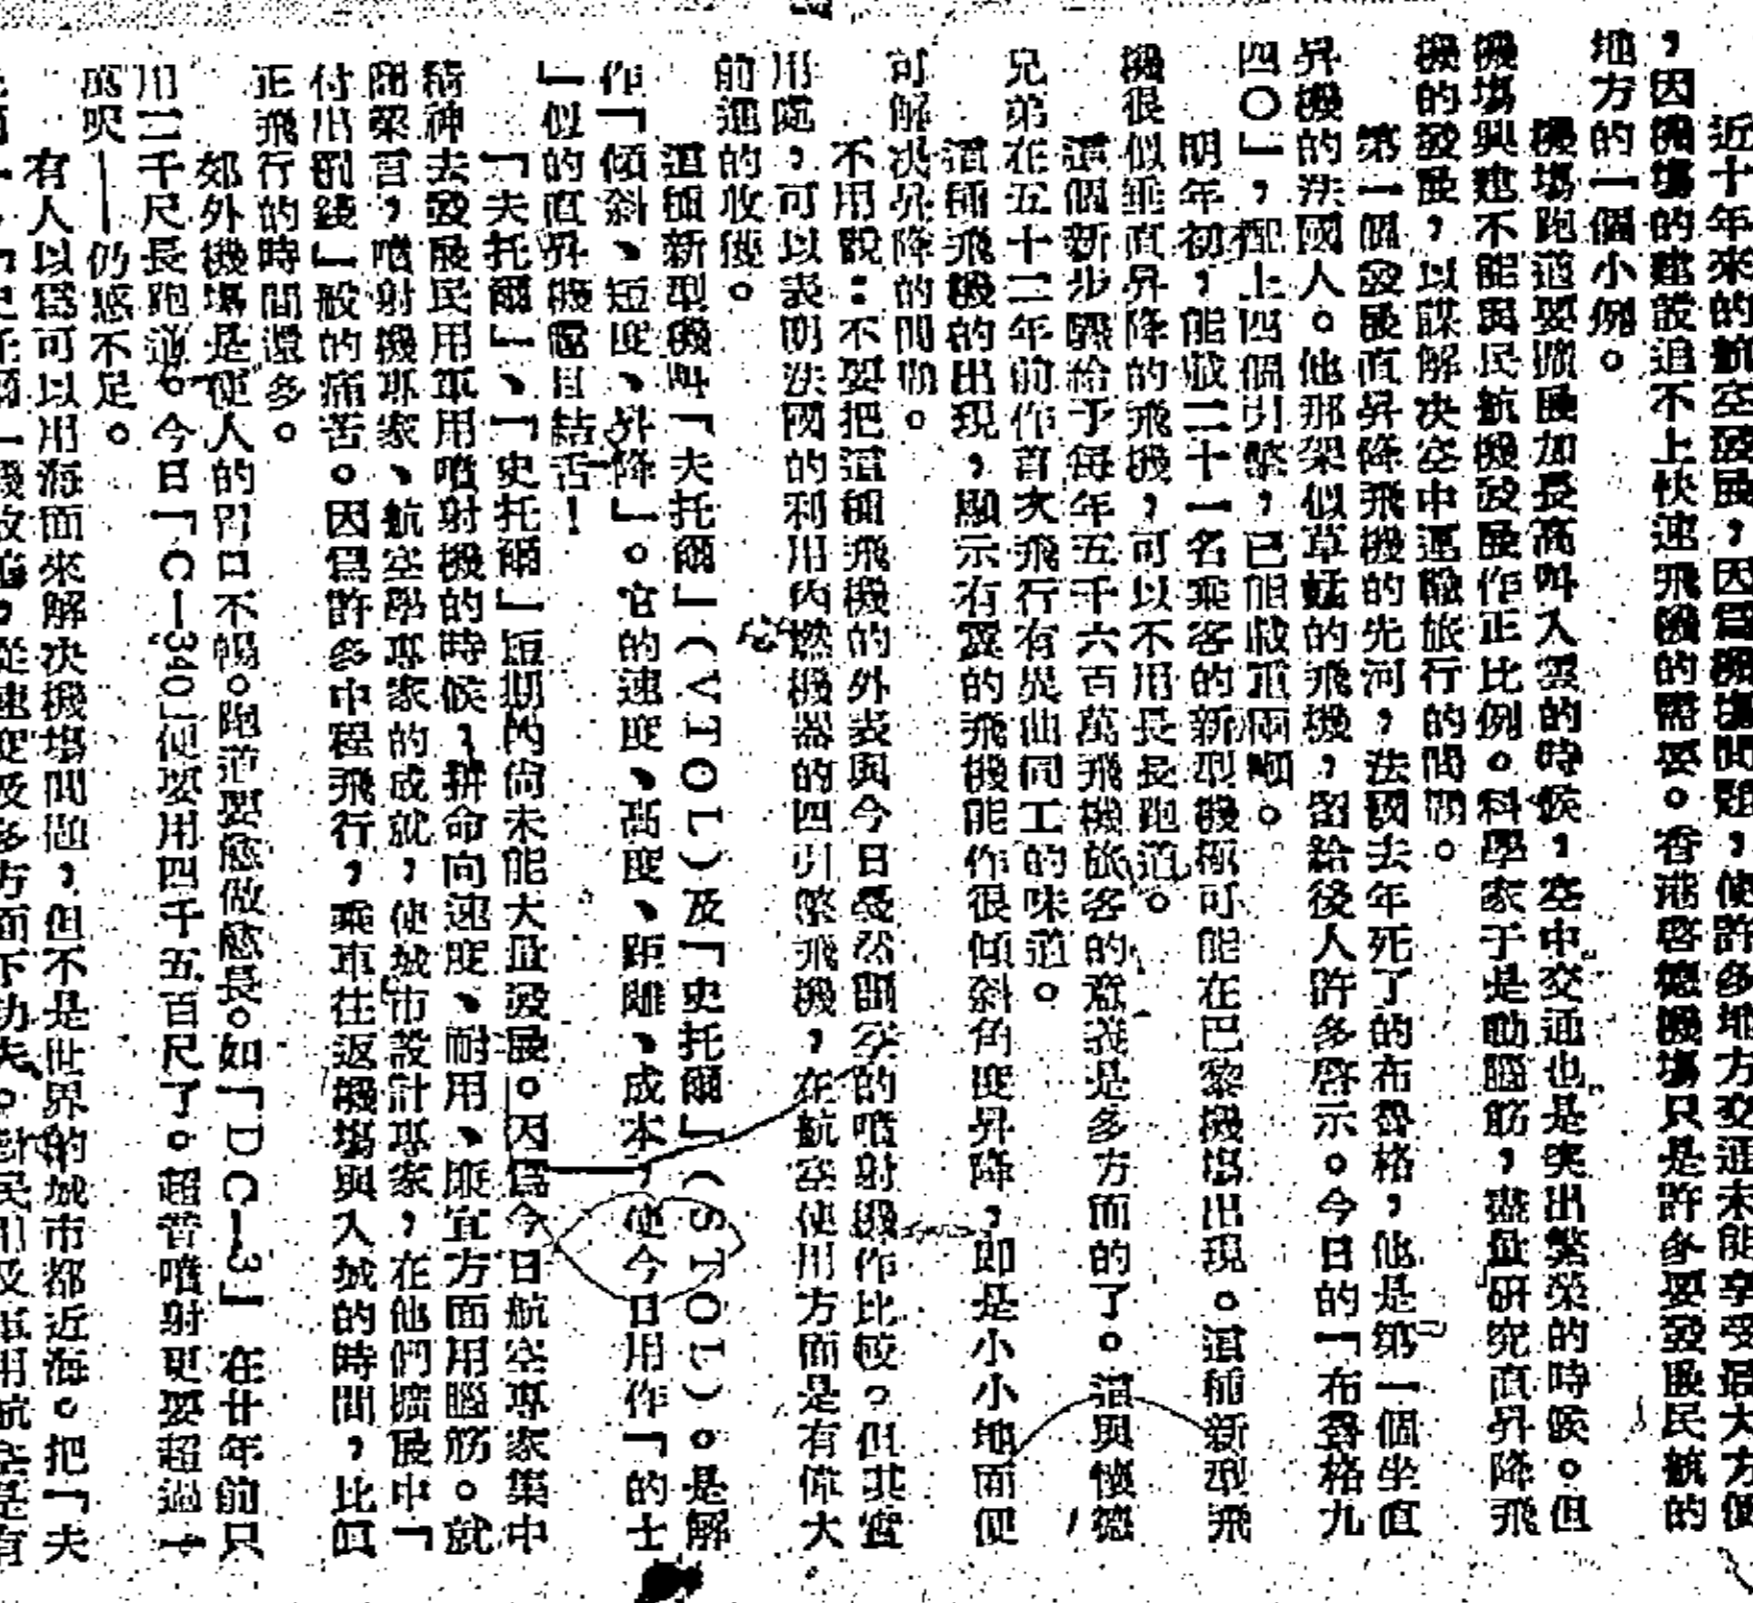 近十年來的航空發展，因爲機場問題，使許多地方交通未能享受最大方便
，因機場的建設追不上快速飛機的需要。香港啓德機場只是許多要發展民航的
地方的一個小例。
機場跑道要擴展加長高叫入雲的時候，空中交通也是突出繁榮的時候。但
機場興建不能與民航機發展作正比例。科學家于是動腦筋，盡量研究直昇降飛
機的發展，以謀解决空中運輸旅行的問題。
第一個發展直昇降飛機的先河，法國去年死了的布魯格，他是第一個坐直
昇機的法國人。他那架似草蜢的飛機，留給後人許多啓示。今日的「布魯格九
四〇」，配上四個引擎，已能載重兩噸。
明年初，能載二十一名乘客的新型機極可能在巴黎機場出現。這種新型飛
機很似垂直昇降的飛機，可以不用長長跑道。
這個新步驟給予每年五千六百萬飛機旅客的意義是多方面的了。這與懷德
兄弟在五十二年前作首次飛行有異曲同工的味道。
這種飛機的出現，顯示有翼的飛機能作很傾斜角度昇降，即是小小地面便
可解决昇降的問題。
不用說：不要把這種飛機的外表與今日戞然開空的噴射機作比較。但其實
用處，可以表明法國的利用內燃機器的四引擎飛機，在航空使用方面是有偉大
前進的收獲。
這種新型機叫「夫托爾」（VTOL）及「史托爾」（STOL）。是解
作「傾斜、短度、昇降」。它的速度、高度、距離、成本，使今日用作「的士
」似的直昇機瞠目結舌！
「夫托爾」、「史托爾」短期內尙未能大量發展。因爲今日航空專家集中
精神去發展民用軍用噴射機的時候，拼命向速度、耐用、廉宜方面用腦筋。就
商業言，噴射機專家、航空學專家的成就，使城市設計專家，在他們擴展中「
付出劏錢」般的痛苦。因爲許多中程飛行，乘車往返機場與入城的時間，比眞
正飛行的時間還多。
郊外機場是使人的胃口不暢。跑道要愈做愈長。如「DC—3」在廿年前只
用二千尺長跑道。今日「C—340」便要用四千五百尺了。超音噴射更要超過一
萬呎——仍感不足。
有人以爲可以用海面來解决機場問題，但不是世界的城市都近海。把「夫